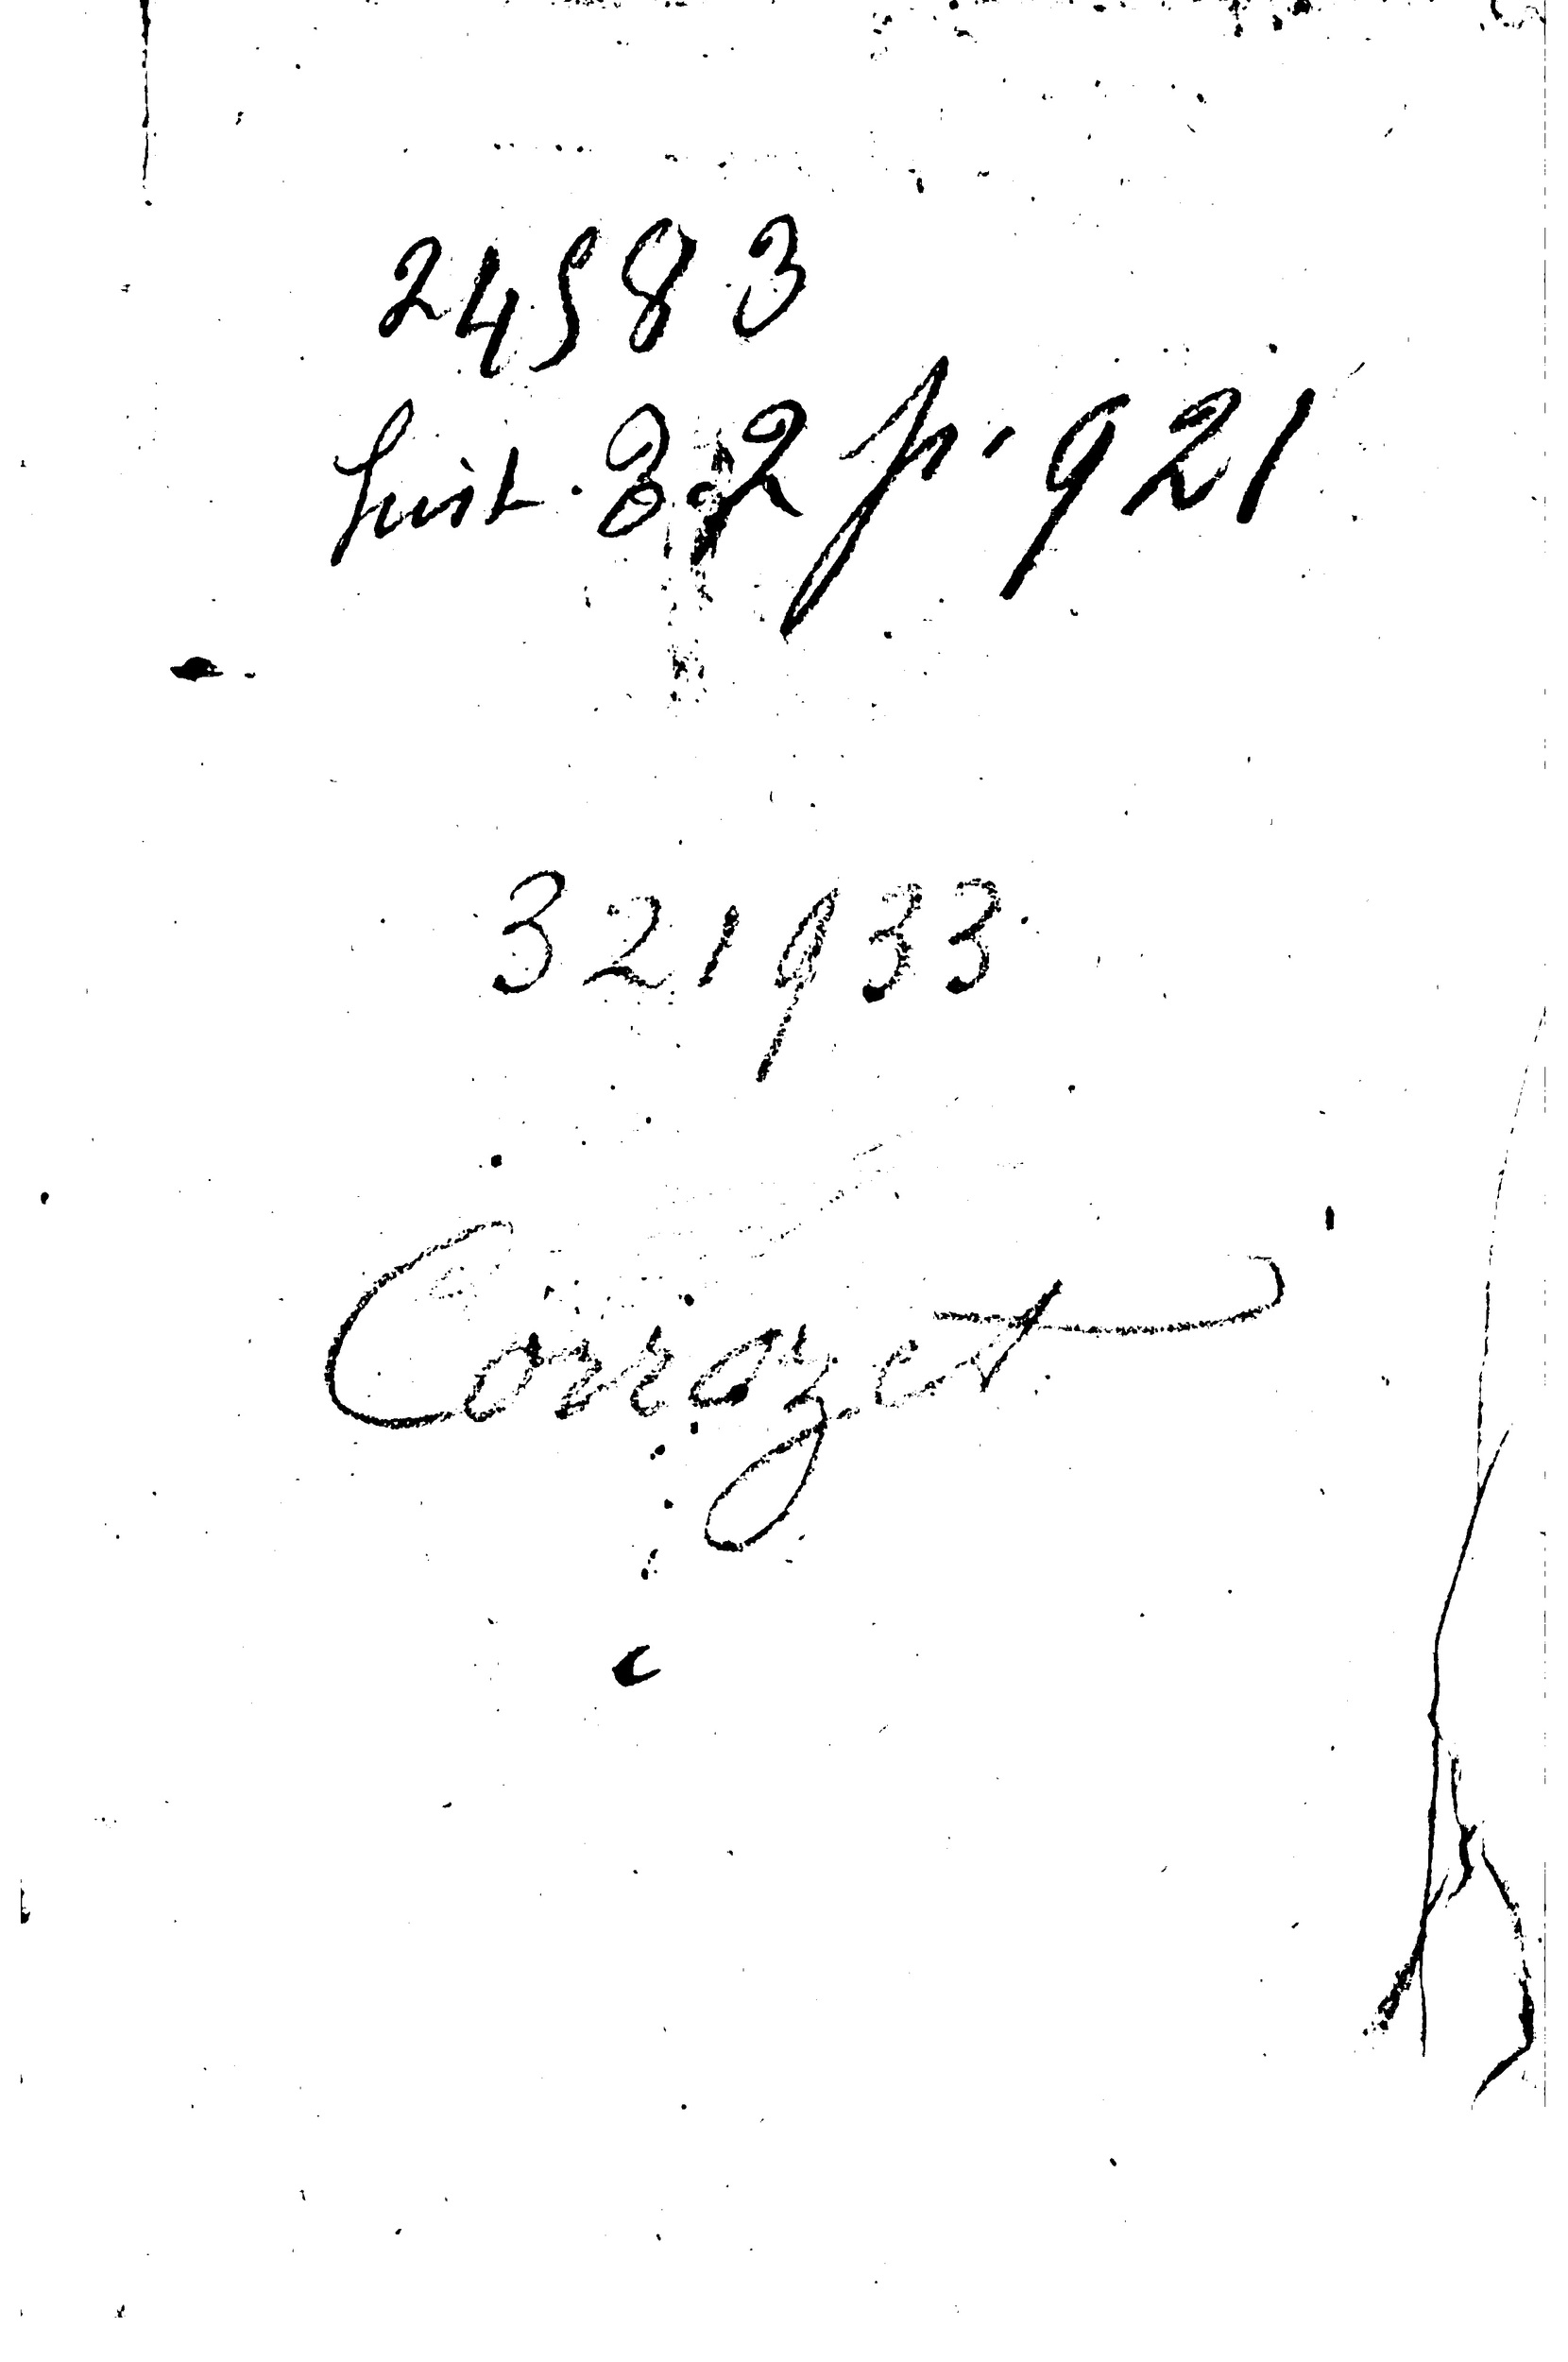 24583
hist. 32 p. 921
321933
Corrozet